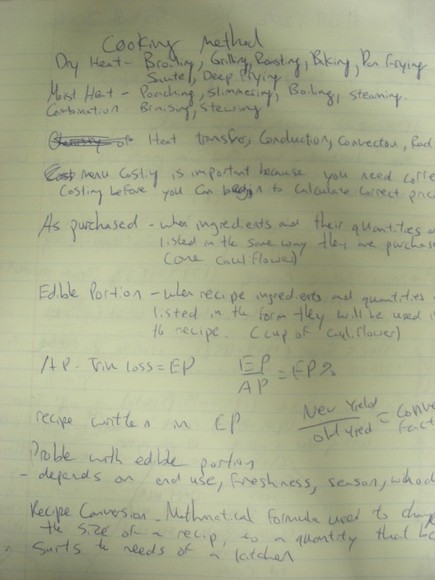 Cooking method
Dry Heat - Broiling, Grilling, Roasting, Baking, Pan Frying
Saute, Deep Frying
Moist Heat - Poaching, Simmering, Boiling, steaming.
Combination Braising, stewing
of Heat transfer, Conduction, Convection, Rad
menu costing is important because you need corre
Costing before you can begin to calculate correct pric
As purchased - when ingredients and their quantities a
listed in the same way they are purchase
(one cauliflower)
Edible Portion - when recipe ingredients and quantities
listed in the form they will be used i
the recipe. (cup of cauliflower)
AP - Trim loss = EP EP/AP = EP%
recipe written in EP New Yield/old Yield = Conve Fact
Problem with edible portion
- depends on end use, freshness, season,
Recipe Conversion - Mathmatical formula used to chang
the size of a recip, to a quantity that be
suits the needs of a kitchen